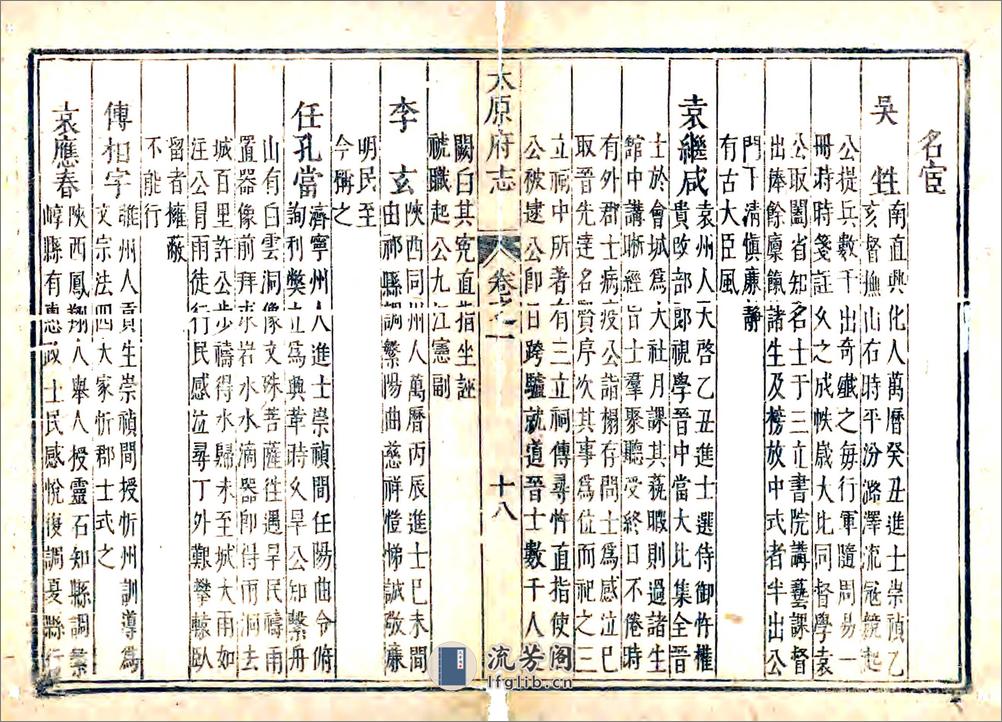 名宦
吳甡南直興化人萬曆癸丑進士崇禎乙
亥督撫山右時平汾潞澤流冦競起
公提兵數千出奇殱之每行軍隨周易一
冊時箋註久之成帙歲大比同督學袁
公取闔省知名士于三立書院講藝課督
出俸餘廩餼諸生及榜放中式者半出公
門下清愼廉靜
有古大臣風
袁繼咸袁州人天啓乙丑進士選侍御忤權
貴改部郎視學晉中當大比集全晉
士於會城爲大社月課其藝暇則過諸生
館中講晰經旨士羣聚聽受終日不倦時
有外郡士病疫公詣榻存問士爲感泣巳
取晉先達名賢序次其事爲位而祀之三
立祠中所著有三立祠傳尋忤直指使
公被逮公卽日跨驢就道晉士數千人
太原府志
卷之一
十八
闕白其冤直指坐誣
褫職起公九江憲副
李玄陜西同州人萬曆丙辰進士巳未間
由祁縣調繁陽曲慈祥愷悌誠敬廉
明民至
今稱之
任孔當濟寧州人進士崇禎間任陽曲令俯
詢利獘立爲興革時久旱公知繫舟
山有白雲洞像文殊菩薩徃遇旱民禱雨
置器像前拜求岩水水滴器卽得雨洞去
城百里許公步禱得水歸未至城大雨如
注公冐雨徒行民感泣尋丁外艱攀轅臥
留者擁蔽
不能行
傅相宇雒州人貢生崇禎間授忻州訓導爲
文宗法四大家忻郡士式之
袁應春陜西鳳翔人舉人授靈石知縣調繁
崞縣有惠政士民感悅復調夏縣行
流芳阁
lfglib.cn